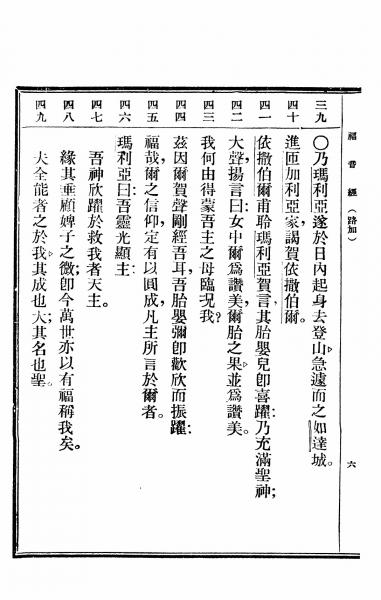 福音經（路加）
六
三九 〇乃瑪利亞遂於日內起身去登山急遽而之如達城。
四十 進匝加利亞家謁賀依撒伯爾。
四一 依撒伯爾甫聆瑪利亞賀言其胎嬰兒卽喜躍乃充滿聖神；
四二 大聲揚言曰女中爾爲讚美，爾胎之果並爲讚美。
四三 我何由得蒙吾主之母臨況我？
四四 茲因爾賀聲剛經吾耳，吾胎嬰彌卽歡欣而振躍：
四五 福哉，爾之信仰，定有以圓成，凡主所言於爾者。
四六 瑪利亞曰：吾靈光顯主：
四七 吾神欣躍於救我者天主。
四八 緣其垂顧婢子之微，卽今萬世亦以有福稱我矣。
四九 夫全能者之於我其成也大；其名也聖。